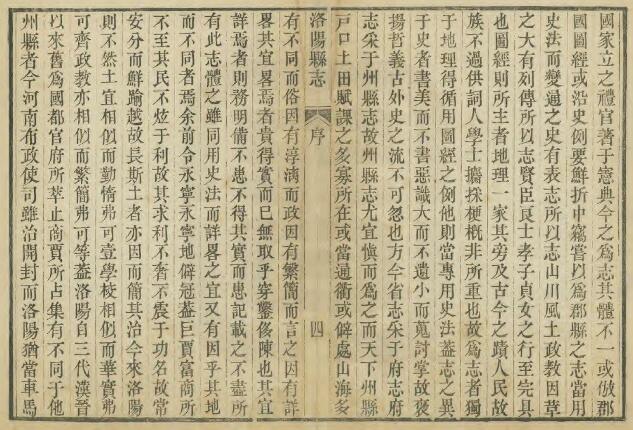 國家立之禮官著于憲典今之為志其體不一或倣郡
國圖經或沿史例要鮮折中竊嘗以為郡縣之志當用
史法而變通之史有表志所以志山川風土政教因革
之大有列傳所以志賢臣良士孝子貞女之行至完具
也圖經則所主者地理一家其旁及古今之蹟人民故
族不過供詞人學士攟採梗槪非所重也故為志者獨
于地理得循用圖經之例他則當專用史法蓋志之異
于史者書美而不書惡識大而不遺小而蒐討掌故褒
揚哲義古外史之流不可忽也方今省志采于府志府
志采于州縣志故州縣志尤宜愼而為之而天下州縣
戸口土田賦課之多寡所在或當通衢或僻處山海多
洛陽縣志
序
四
有不同而俗因有淳漓而政因有繁簡而言之因有詳
畧其宜畧焉者貴得實而已無取乎穿鑿侈陳也其宜
詳焉者則務明備不患不得其實而患記載之不盡所
有此志體之雖同用史法而詳畧之宜又有因乎其地
而不同者焉余前令永寧永寧地僻冠蓋巨賈富商所
不至其民不炫于利故其求利不奢不震于功名故常
安分而鮮踰越故長斯土者亦因而簡其治今來洛陽
則不然土宜相似而勤惰弗可壹學校相似而華實弗
可齊政教亦相似而繁簡弗可等蓋洛陽自三代漢晉
以來舊為國都官府所萃止商賈所占集有不同于他
州縣者今河南布政使司雖治開封而洛陽猶當車馬